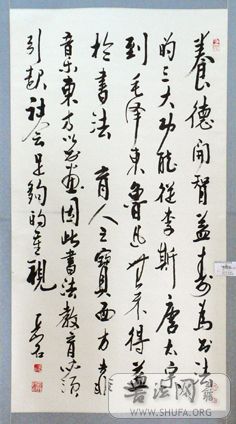 養德開智益壽為書法
的三大功能從李斯唐太宗
到毛泽東魯迅無不得益
於書法 育人之寶西方非
音乐東方以書画因此書法教育必須
引起社会足夠的重視
書法网
WWW.SHUFA.ORG